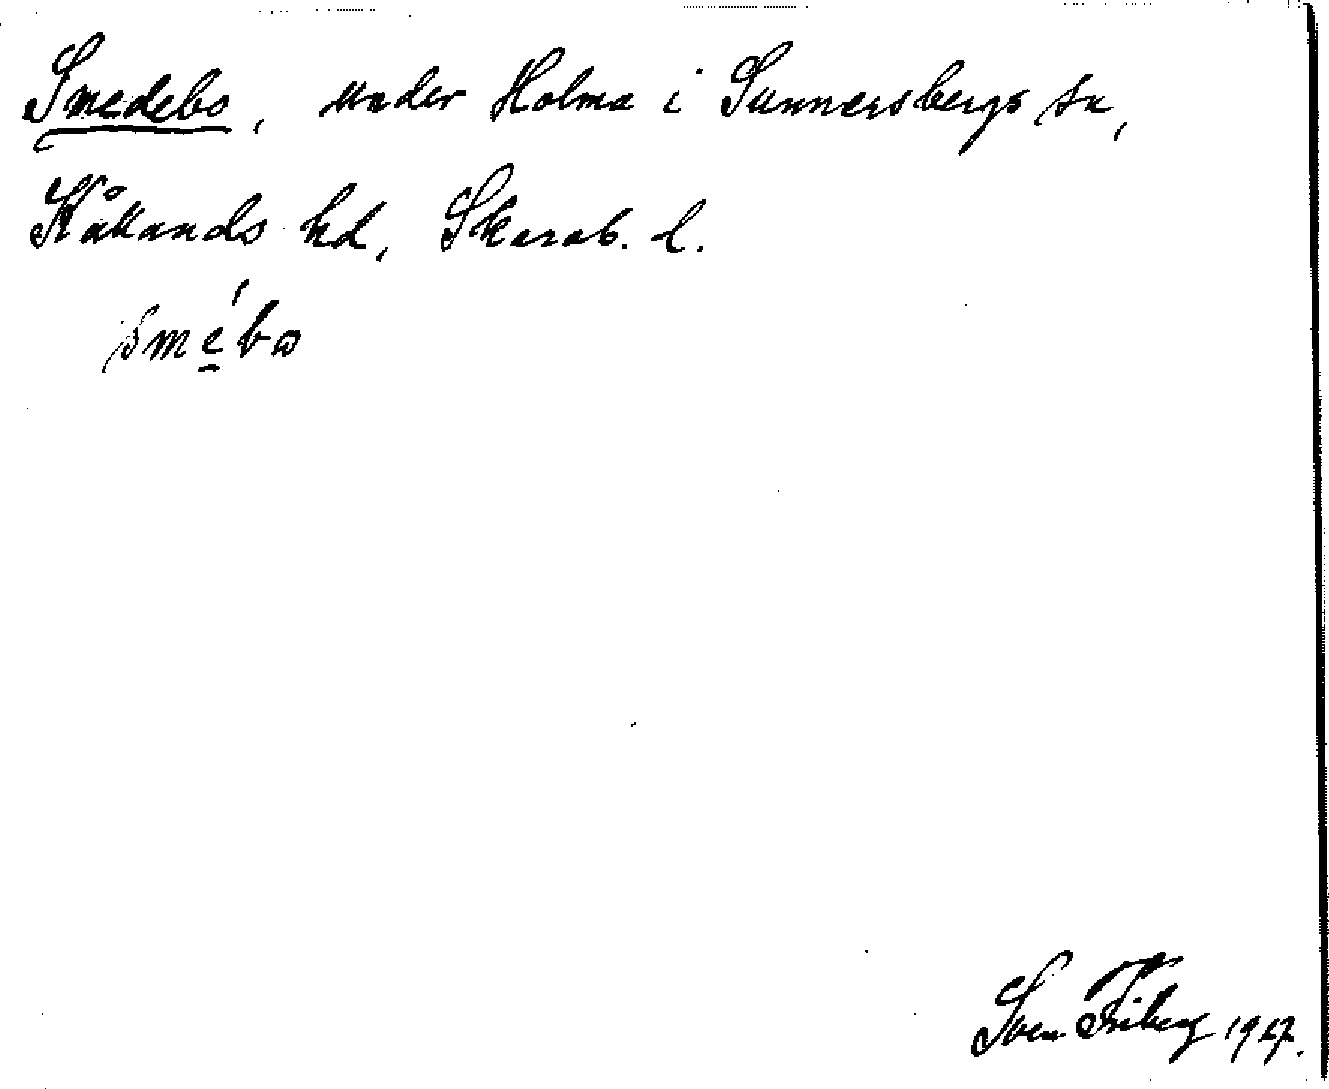 Smedebo, under Holma i Sunnersbergs sn,
Kållands hd, Skarab. l.
smé̱bω
Sven Friberg 1927.